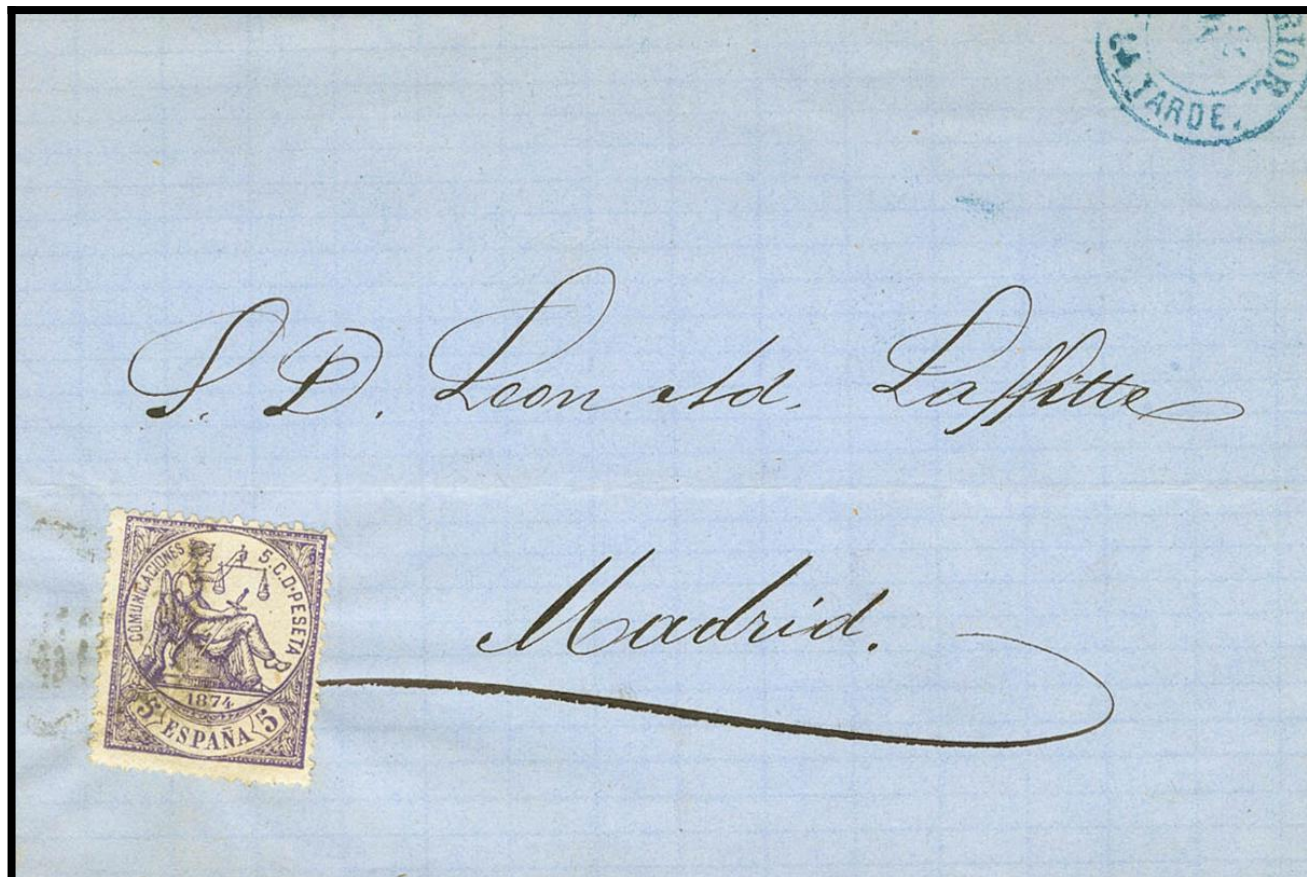 TARDE.
S. D. Leonold. Laffitte
Madrid.
COMUNICACIONES 5. C. D. PESETA
1874
5 ESPAÑA 5